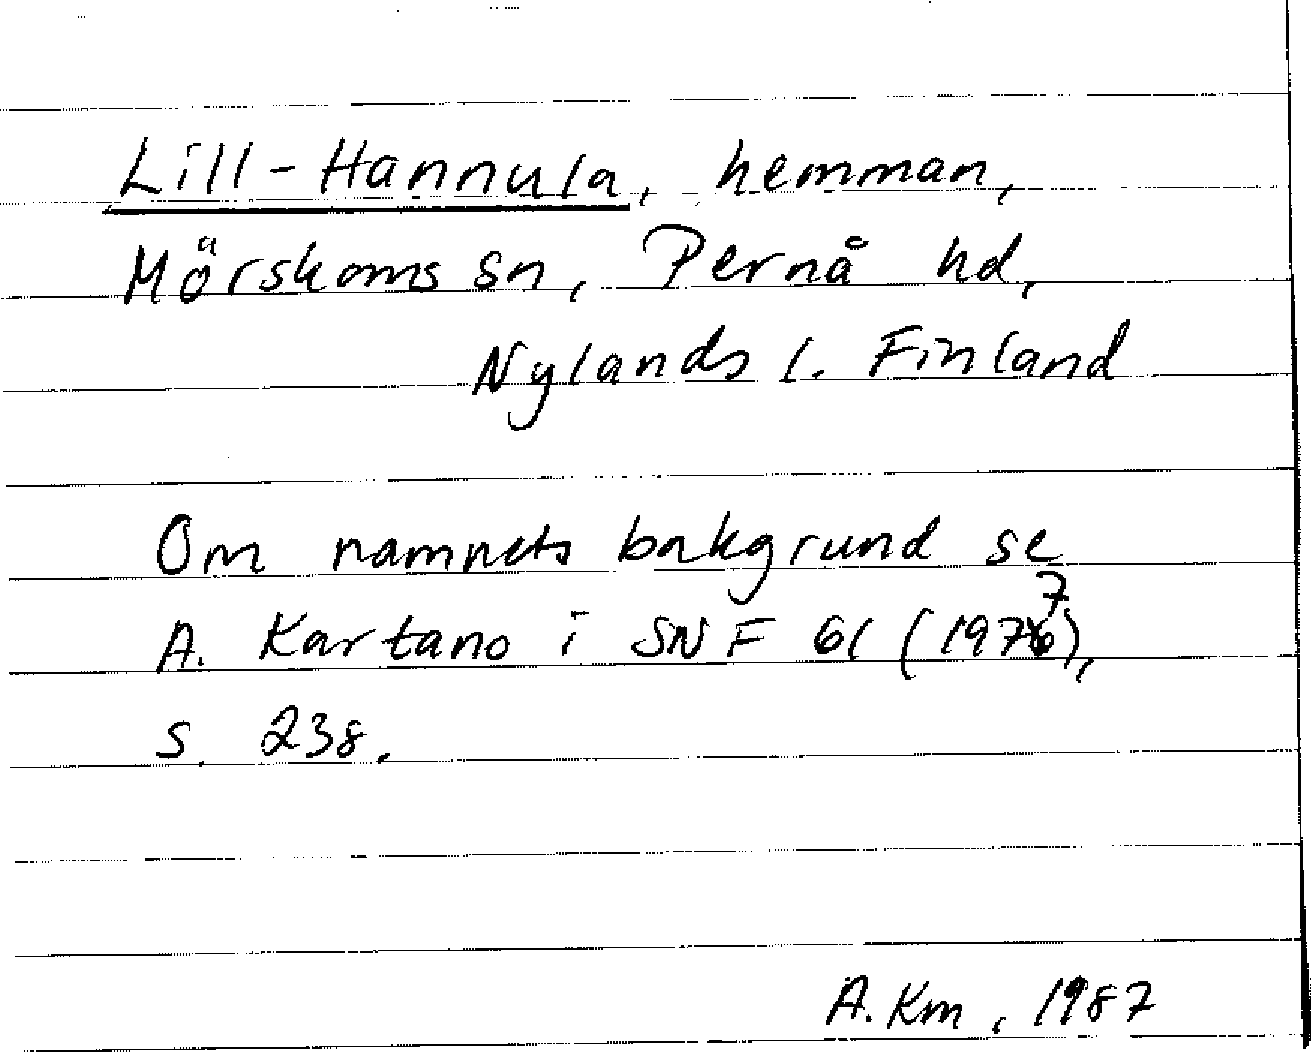 Lill-Hannula, hemman,
Mörskoms sn, Pernå hd,
Nylands l. Finland
Om namnets bakgrund se
A. Kartano i SNF 61 (1977),
s. 238.
A. Km, 1987